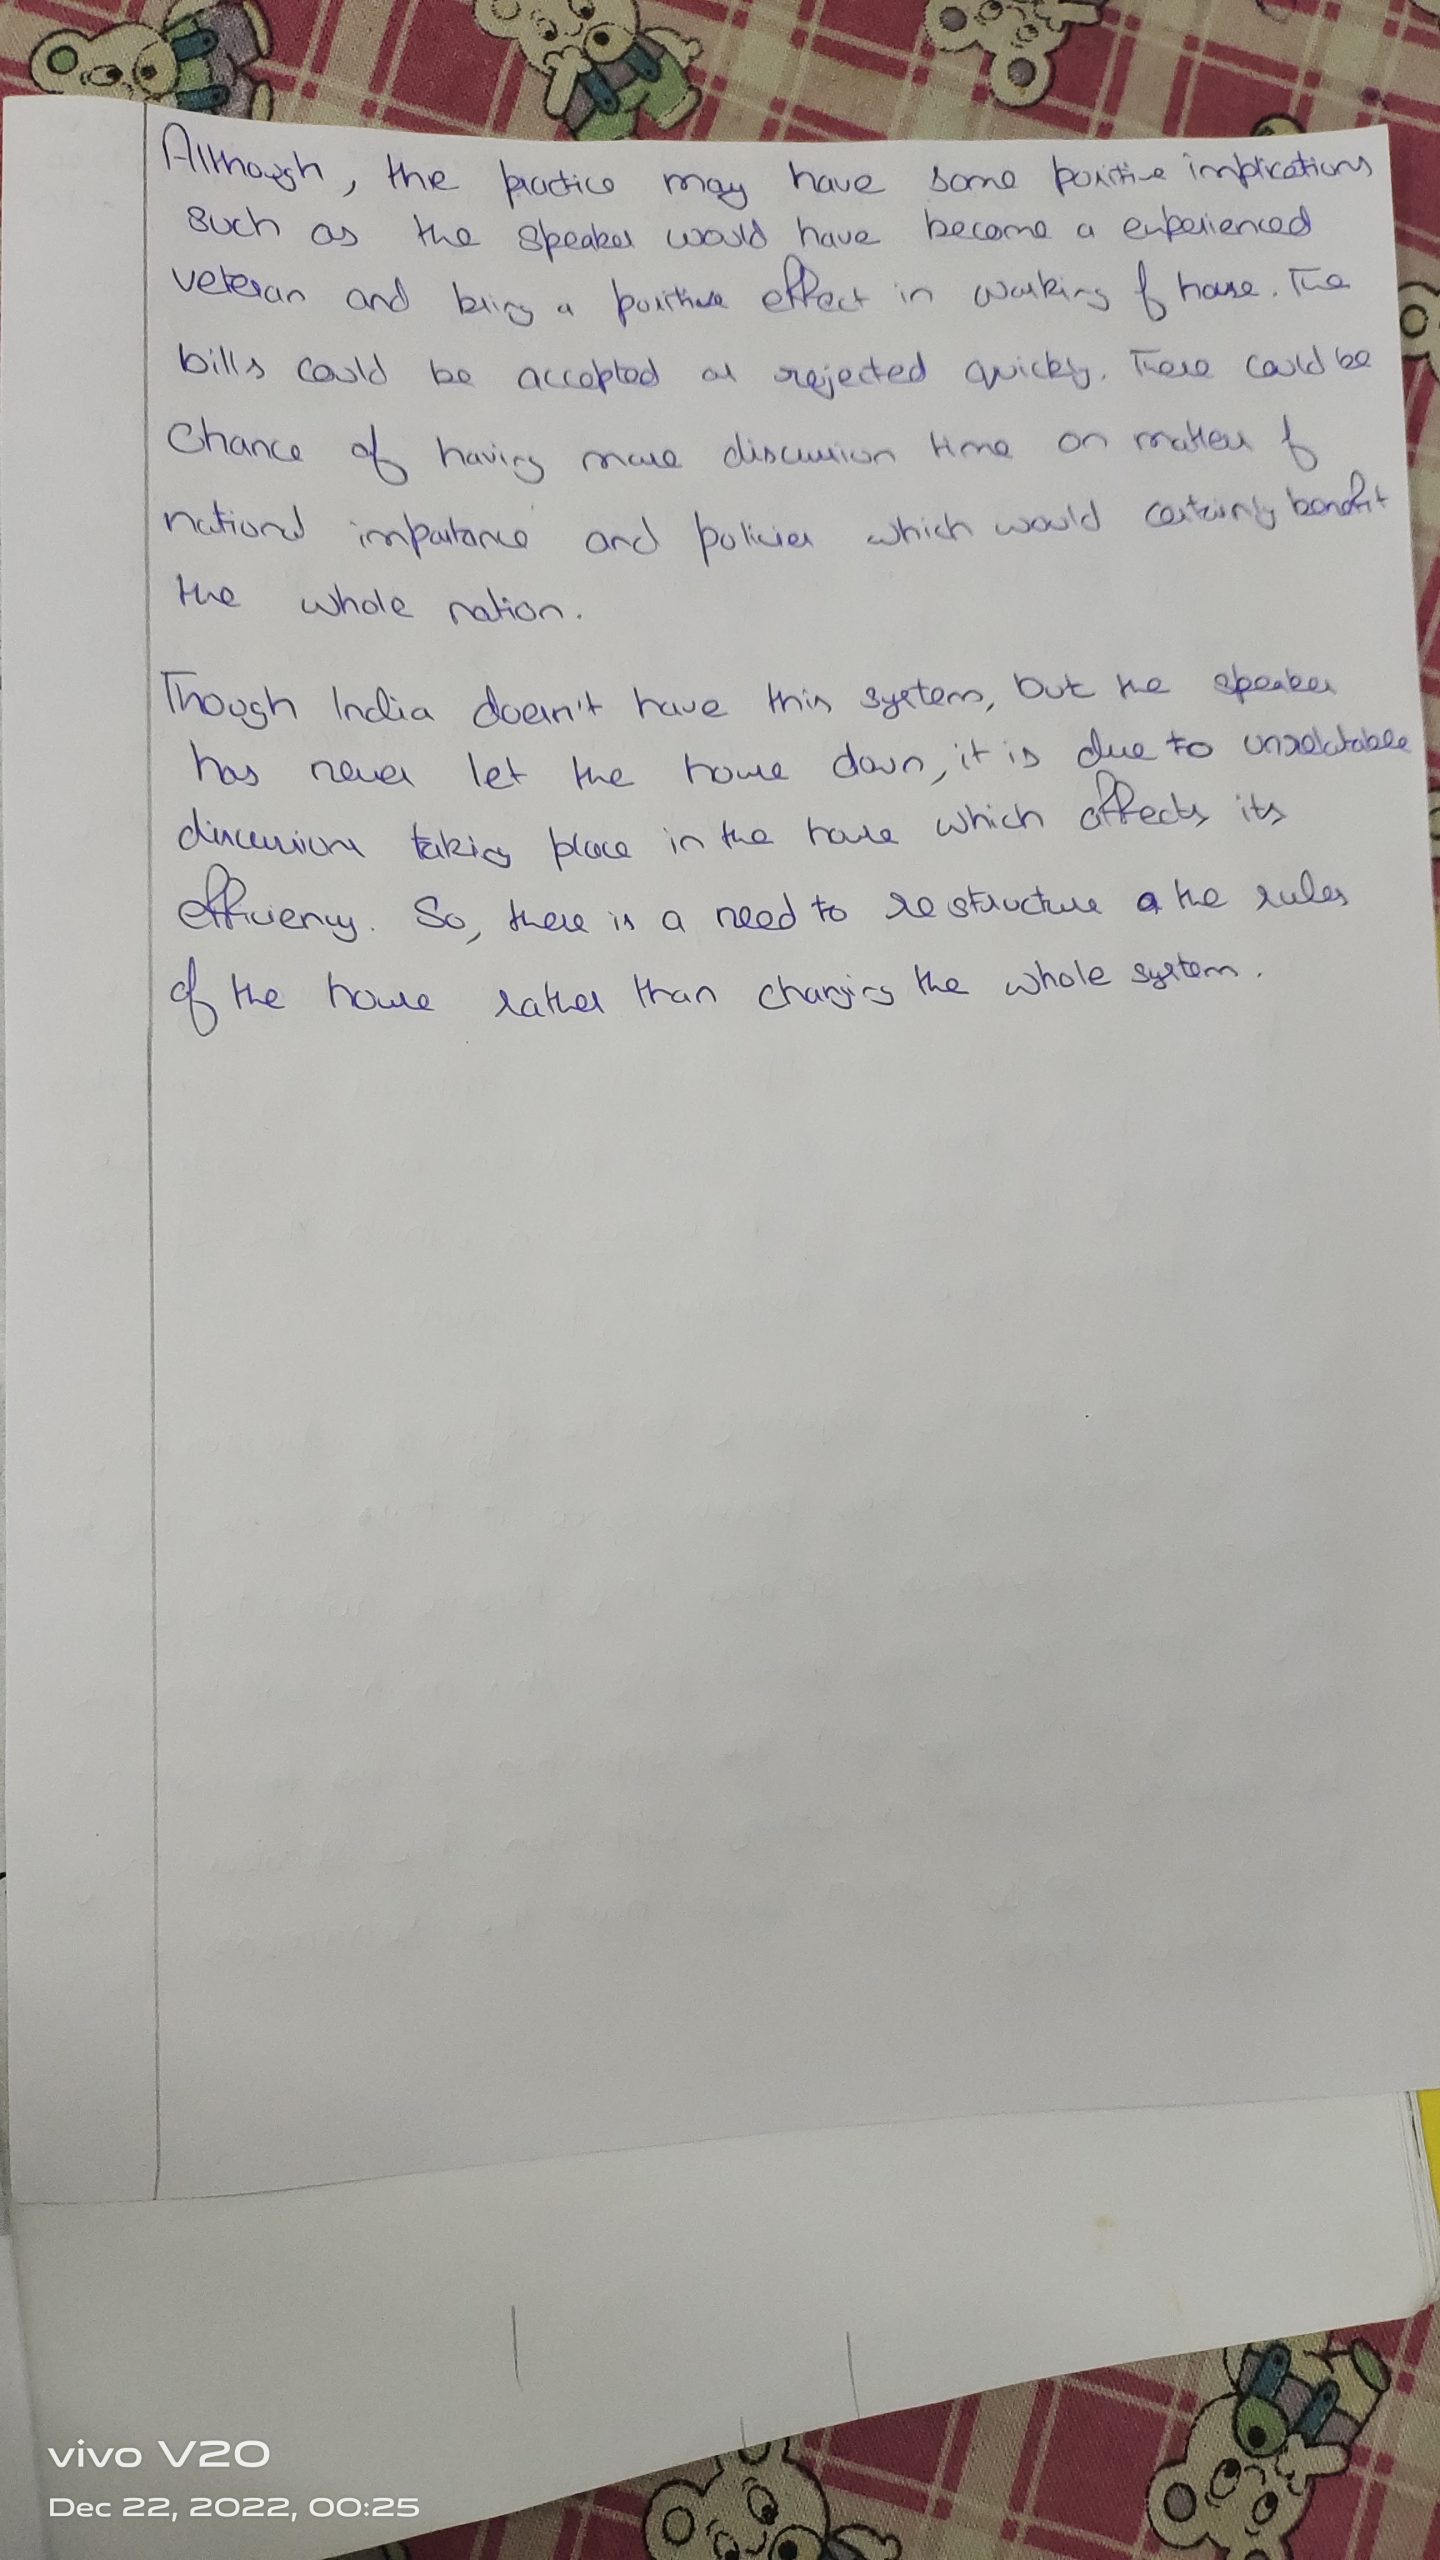 Although, the practice may have some positive implications
such as the speaker would have become a experienced
veteran and bring a positive effect in working of house. The
bills could be accepted or rejected quickly. There could be
chance of having more discussion time on matters of
national importance and policies which would certainly benefit
the whole nation.
Though India doesn't have this system, but the speaker
has never let the house down, it is due to
discussions taking place in the house which affects its
efficiency. So, there is a need to restructure the rules
of the house rather than changing the whole system.
vivo V20
Dec 22, 2022, 00:25